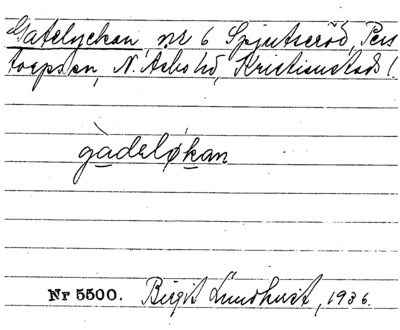 Gatelyckan, nr 6 Spjutseröd, Pers
torps sn, N. Åsbo hd, Kristianstads l.
gàdeløkan
Nr 5500. Birgit Lundqvist, 1936.